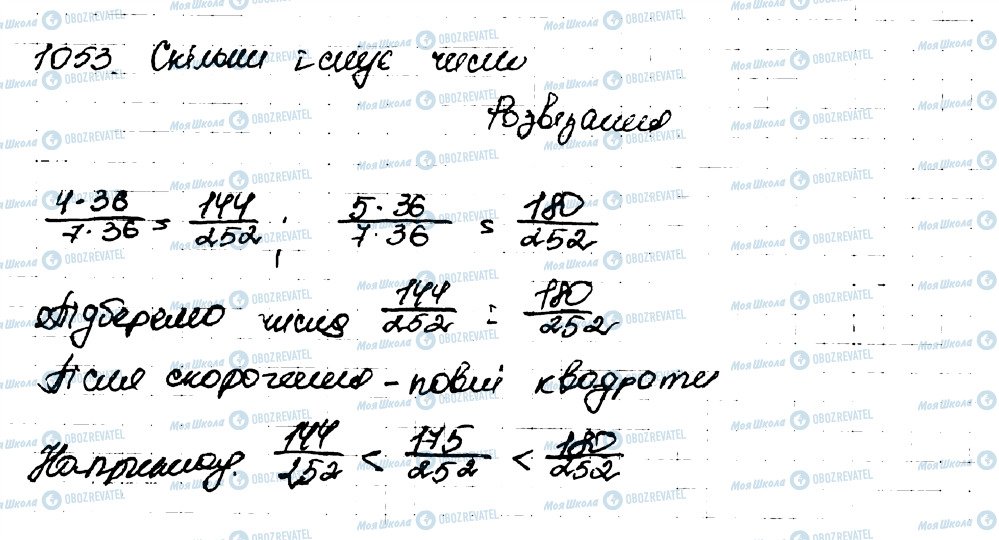 1053 Скільки існує чисел
Розвязання
4·36/7·36 = 144/252 ; 5·36/7·36 = 180/252
Підберемо числа 144/252 і 180/252
Після скорочення - повні квадрати
Наприклад. 144/252 < 175/252 < 180/252